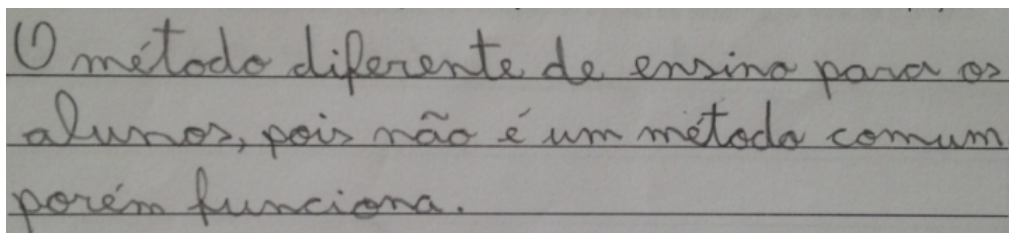 O método diferente de ensino para os
alunos, pois não é um método comum
porém funciona.